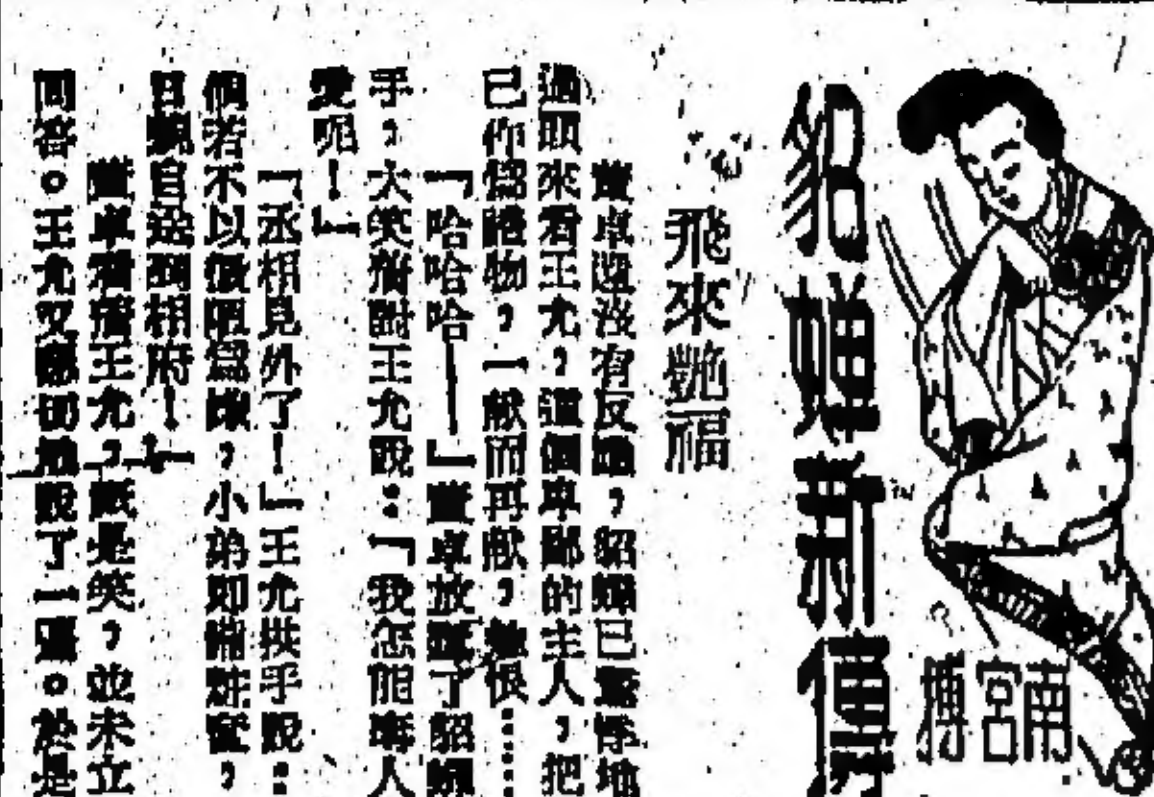 貂蟬新傳
南宮搏
飛來艷福
董卓還沒有反嚮,貂蟬已驚悸地
過頭來看王允,這個卑鄙的主人,把
己作為賭物,一獻而再獻,她恨……
「哈哈哈——」董卓放了貂蟬
手,大笑着對王允說:「我怎能奪人
愛呢!」
「丞相見外了!」王允拱手說:
倘若不以微陋為嫌,小弟如備粧奩,
日親自送到相府!」
董卓看着王允,祇是笑,並未立
回答。王允又懇切地說了一遍。於是